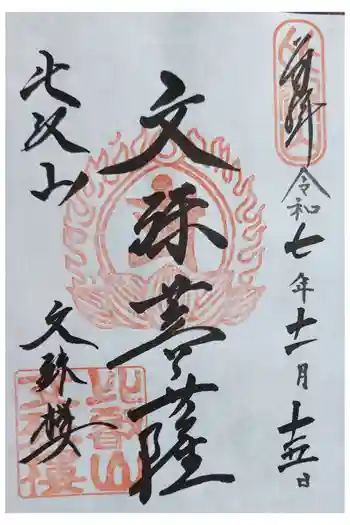 奉拝
令和七年十一月十五日
文殊菩薩
比叡山
文殊楼